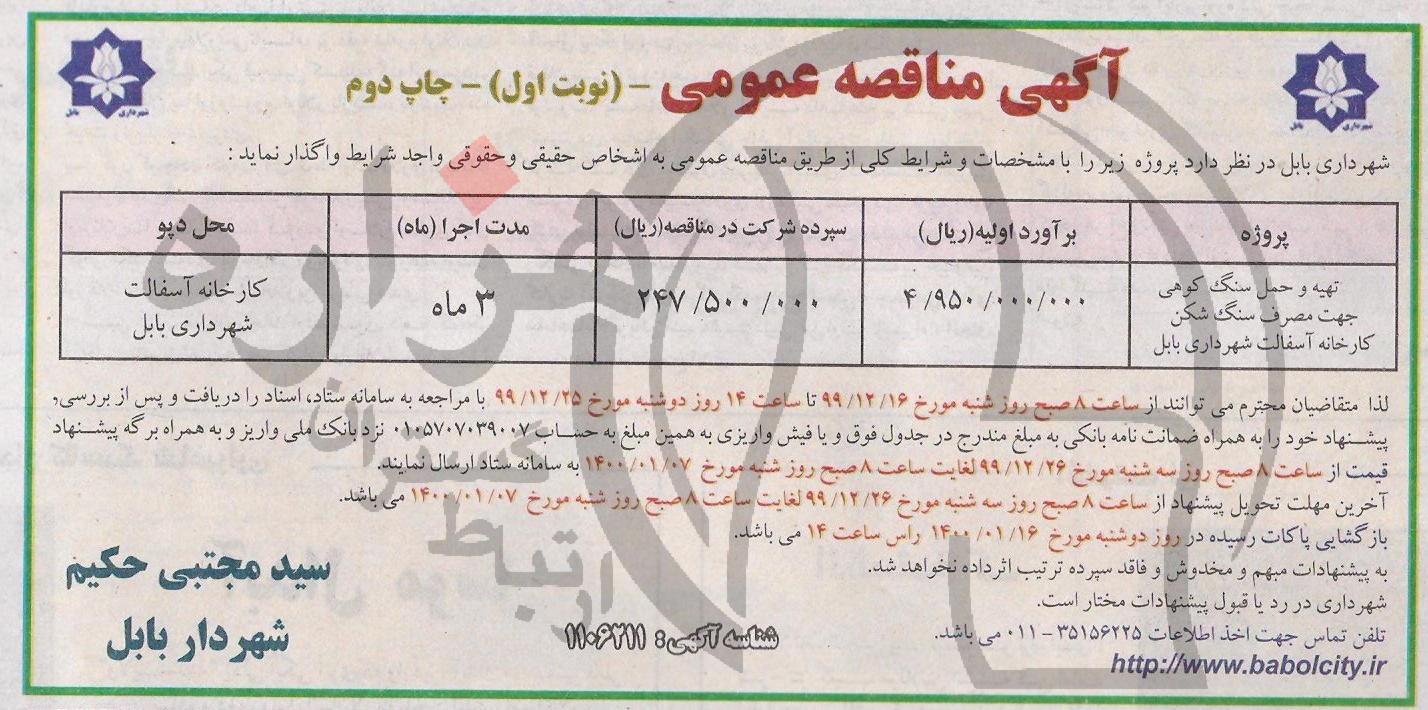 آگهی مناقصه عمومی - (نوبت اول) - چاپ دوم
شهرداری بابل
شهرداری بابل
شهرداری بابل در نظر دارد پروژه زیر را با مشخصات و شرایط کلی از طریق مناقصه عمومی به اشخاص حقیقی وحقوقی واجد شرایط واگذار نماید :
پروژه برآورد اولیه(ریال) سپرده شرکت در مناقصه(ریال) مدت اجرا (ماه) محل دپو
تهیه و حمل سنگ کوهی
جهت مصرف سنگ شکن
کارخانه آسفالت شهرداری بابل
۴/۹۵۰/۰۰۰/۰۰۰
۲۴۷/۵۰۰/۰۰۰
۳ ماه
کارخانه آسفالت
شهرداری بابل
لذا متقاضیان محترم می توانند از ساعت ۸ صبح روز شنبه مورخ ۹۹/۱۲/۱۶ تا ساعت ۱۴ روز دوشنبه مورخ ۹۹/۱۲/۲۵ با مراجعه به سامانه ستاد، اسناد را دریافت و پس از بررسی,
پیشنهاد خود را به همراه ضمانت نامه بانکی به مبلغ مندرج در جدول فوق و یا فیش واریزی به همین مبلغ به حساب ۰۱۰۵۷۰۷۰۳۹۰۰۷ نزد بانک ملی واریز و به همراه برگه پیشنهاد
قیمت از ساعت ۸ صبح روز سه شنبه مورخ ۹۹/۱۲/۲۶ لغایت ساعت ۸ صبح روز شنبه مورخ ۱۴۰۰/۰۱/۰۷ به سامانه ستاد ارسال نمایند.
آخرین مهلت تحویل پیشنهاد از ساعت ۸ صبح روز سه شنبه مورخ ۹۹/۱۲/۲۶ لغایت ساعت ۸ صبح روز شنبه مورخ ۱۴۰۰/۰۱/۰۷ می باشد.
بازگشایی پاکات رسیده در روز دوشنبه مورخ ۱۴۰۰/۰۱/۱۶ راس ساعت ۱۴ می باشد.
به پیشنهادات مبهم و مخدوش و فاقد سپرده ترتیب اثرداده نخواهد شد.
شهرداری در رد یا قبول پیشنهادات مختار است.
تلفن تماس جهت اخذ اطلاعات ۳۵۱۵۶۲۲۵-۰۱۱ می باشد.
http://www.babolcity.ir
شناسه آگهی: ۱۱۰۶۲۱۱
سید مجتبی حکیم
شهردار بابل
هزاره
گستران
ارتباط